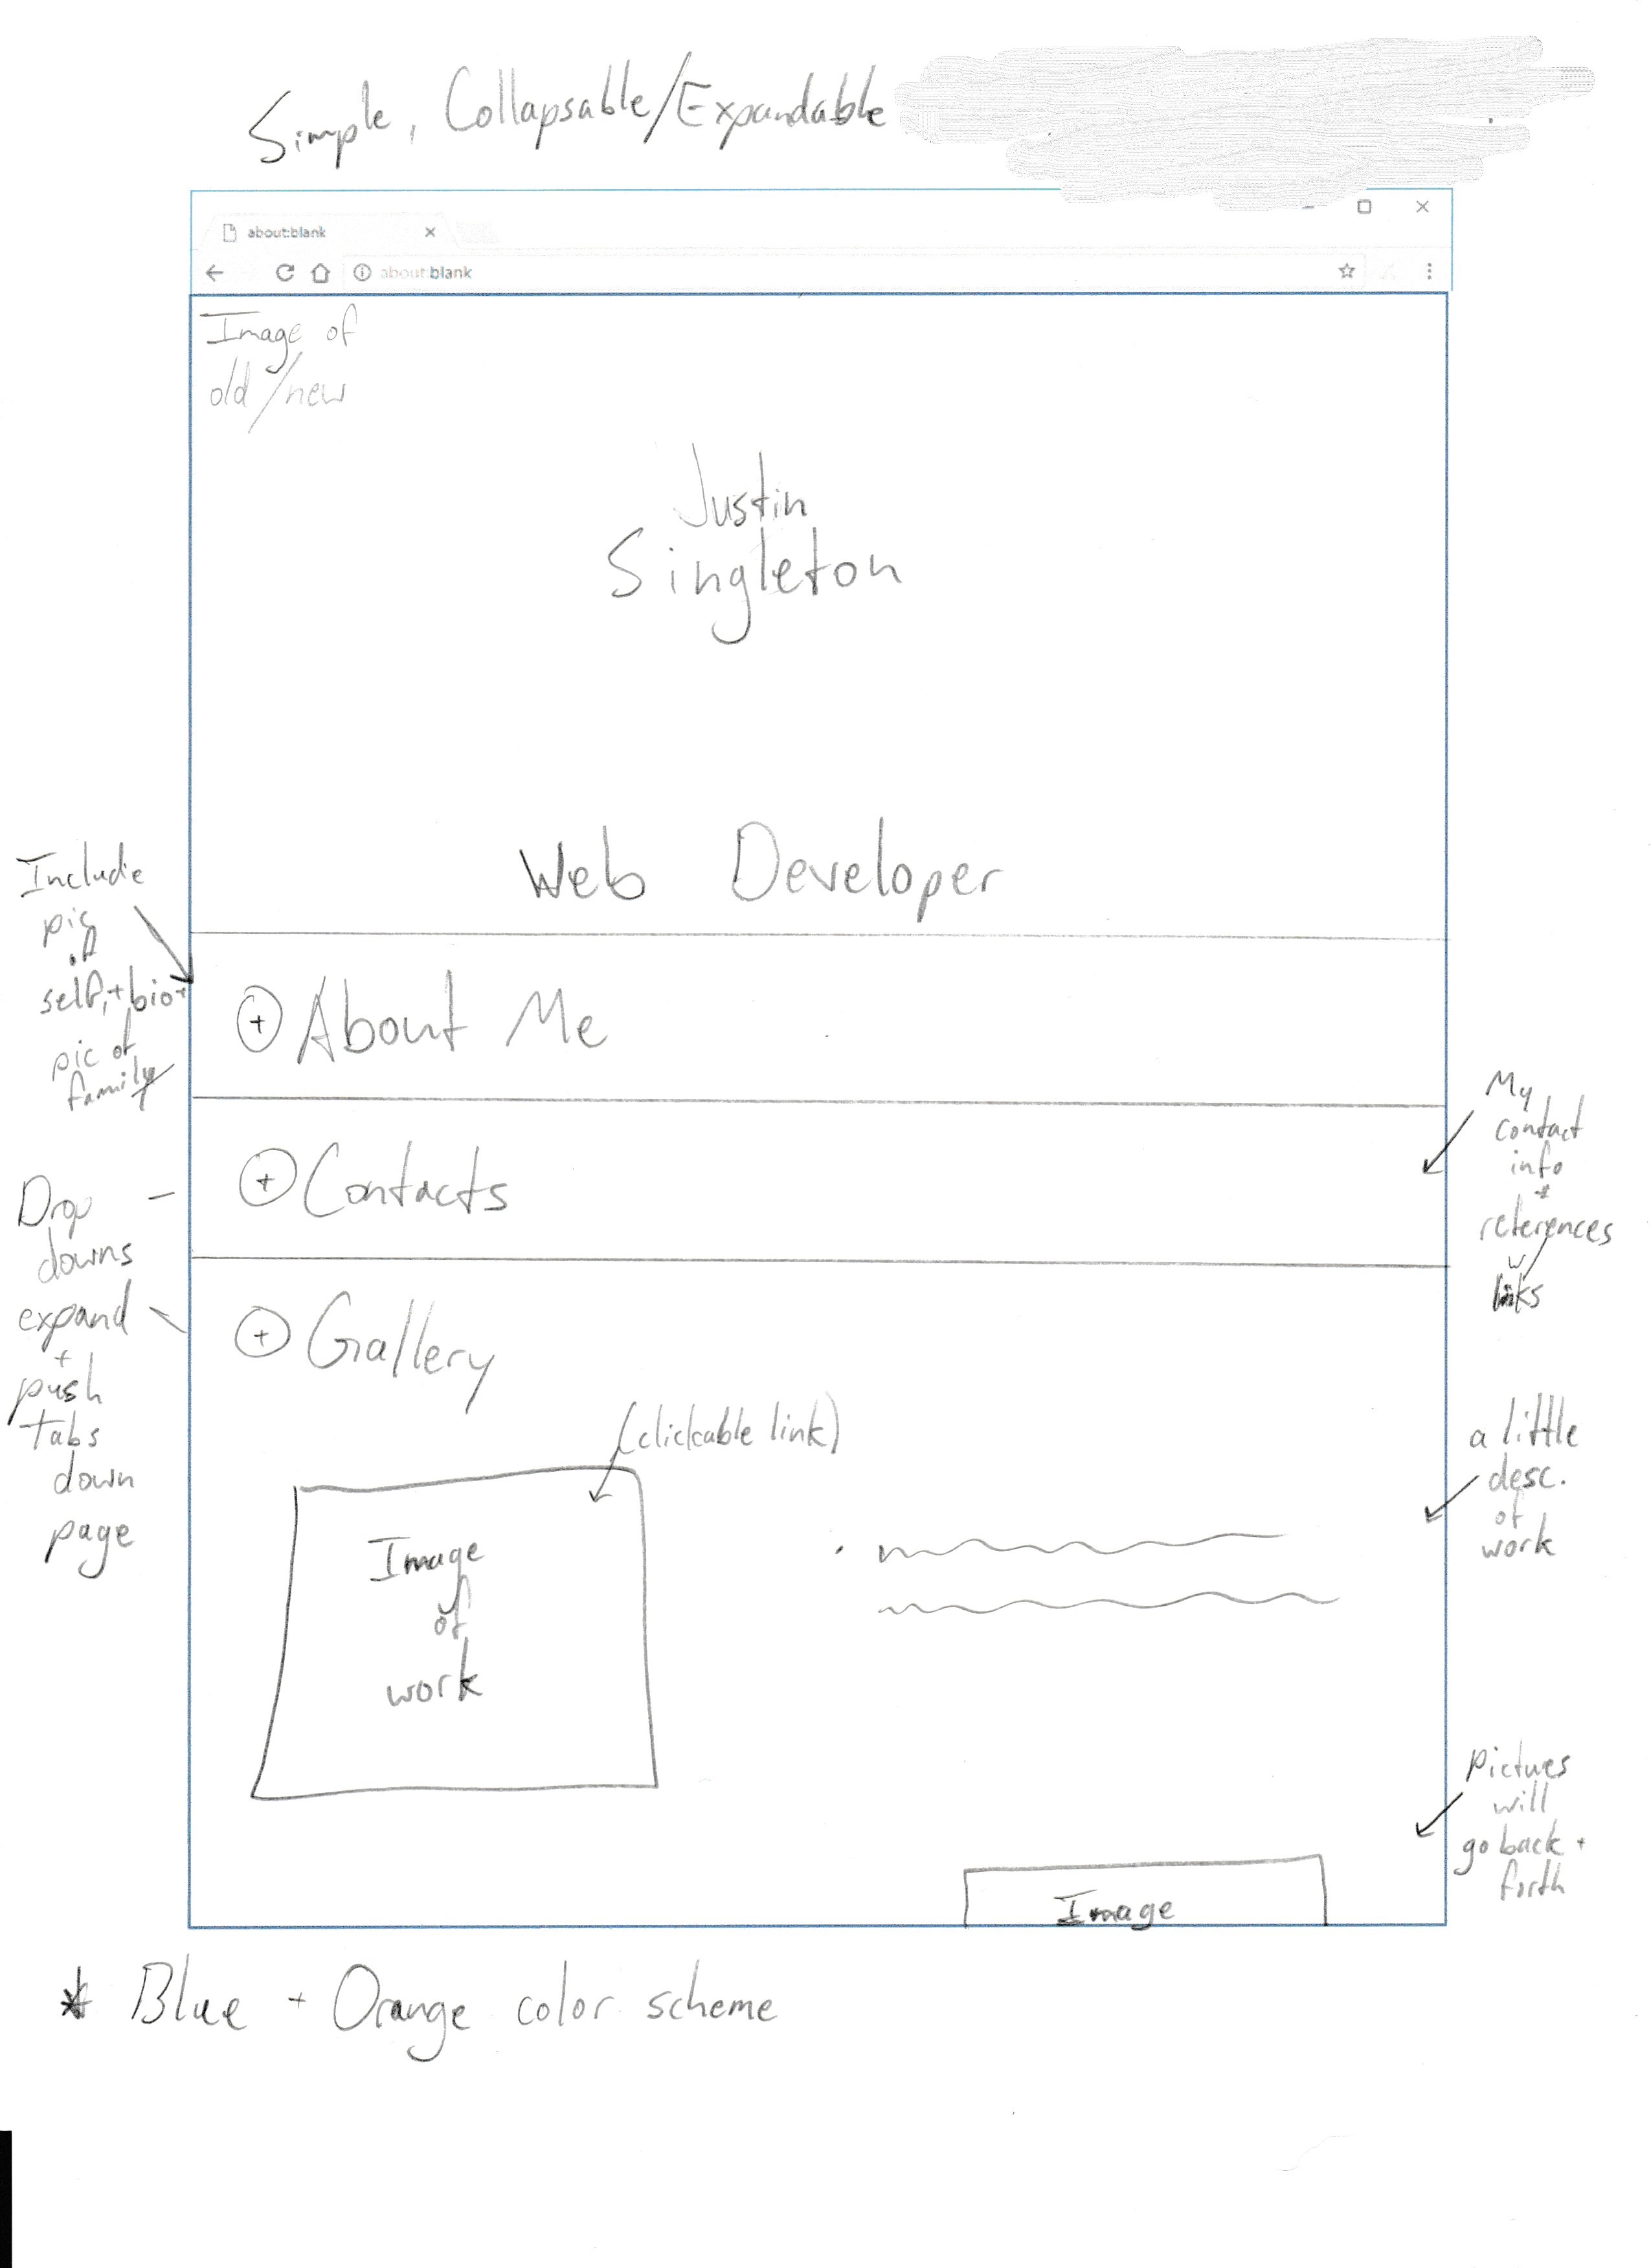 Simple, Collapsable/Expandable
about:blank
about:blank
Image of
old/new
Justin
Singleton
Web Developer
Include
pic
of
self, + bio +
pic of
family
+ About Me
+ Contacts
My
contact
info
+
references
w/
links
Drop
downs
expand
+
push
tabs
down
page
+ Gallery
(clickable link)
Image
of
work
a little
desc.
of
work
Pictures
will
go back +
forth
Image
* Blue + Orange color scheme